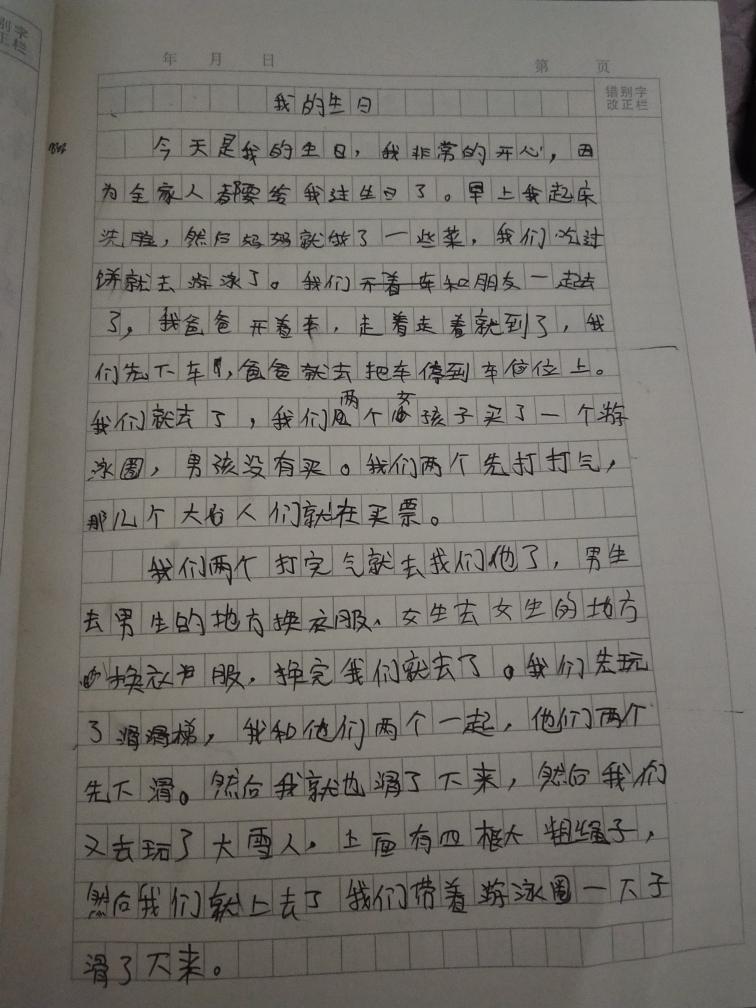 别字
正栏
年 月 日
第 页
错别字
改正栏
我的生日
今天是我的生日，我非常的开心，因
为全家人都要给我过生日了。早上我起床
洗脸，然后妈妈就做了一些菜，我们吃过
饼就去游泳了。我们开着车和朋友一起去
了，我爸爸开着车，走着走着就到了，我
们先下车，爸爸就去把车停到车位位上。
我们就去了，我们两个女孩子买了一个游
泳圈，男孩没有买。我们两个先打打气，
那几个大人们就在买票。
我们两个打完气就去我们他了，男生
去男生的地方换衣服，女生去女生的地方
换衣服，换完我们就去了。我们先玩
了滑滑梯，我和他们两个一起，他们两个
先下滑。然后我就也滑了下来，然后我们
又去玩了大雪人，上面有四根大粗绳子，
然后我们就上去了我们带着游泳圈一下子
滑了下来。